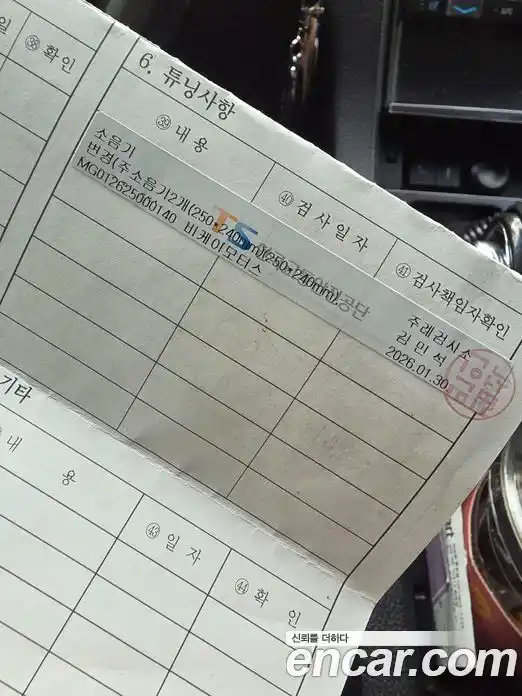 일
㊳ 확 인
6. 튜닝사항
㊴ 내 용
㊵ 검 사 일 자
㊶ 검사책임자확인
소음기
변경(주소음기2개(250*240mm)(250*240mm),
MG012625000140 비케이모터스
TS
공단
주례검사소
김민석
2026.01.30
기타
내 용
㊸ 일 자
㊹ 확 인
신뢰를 더하다
encar.com